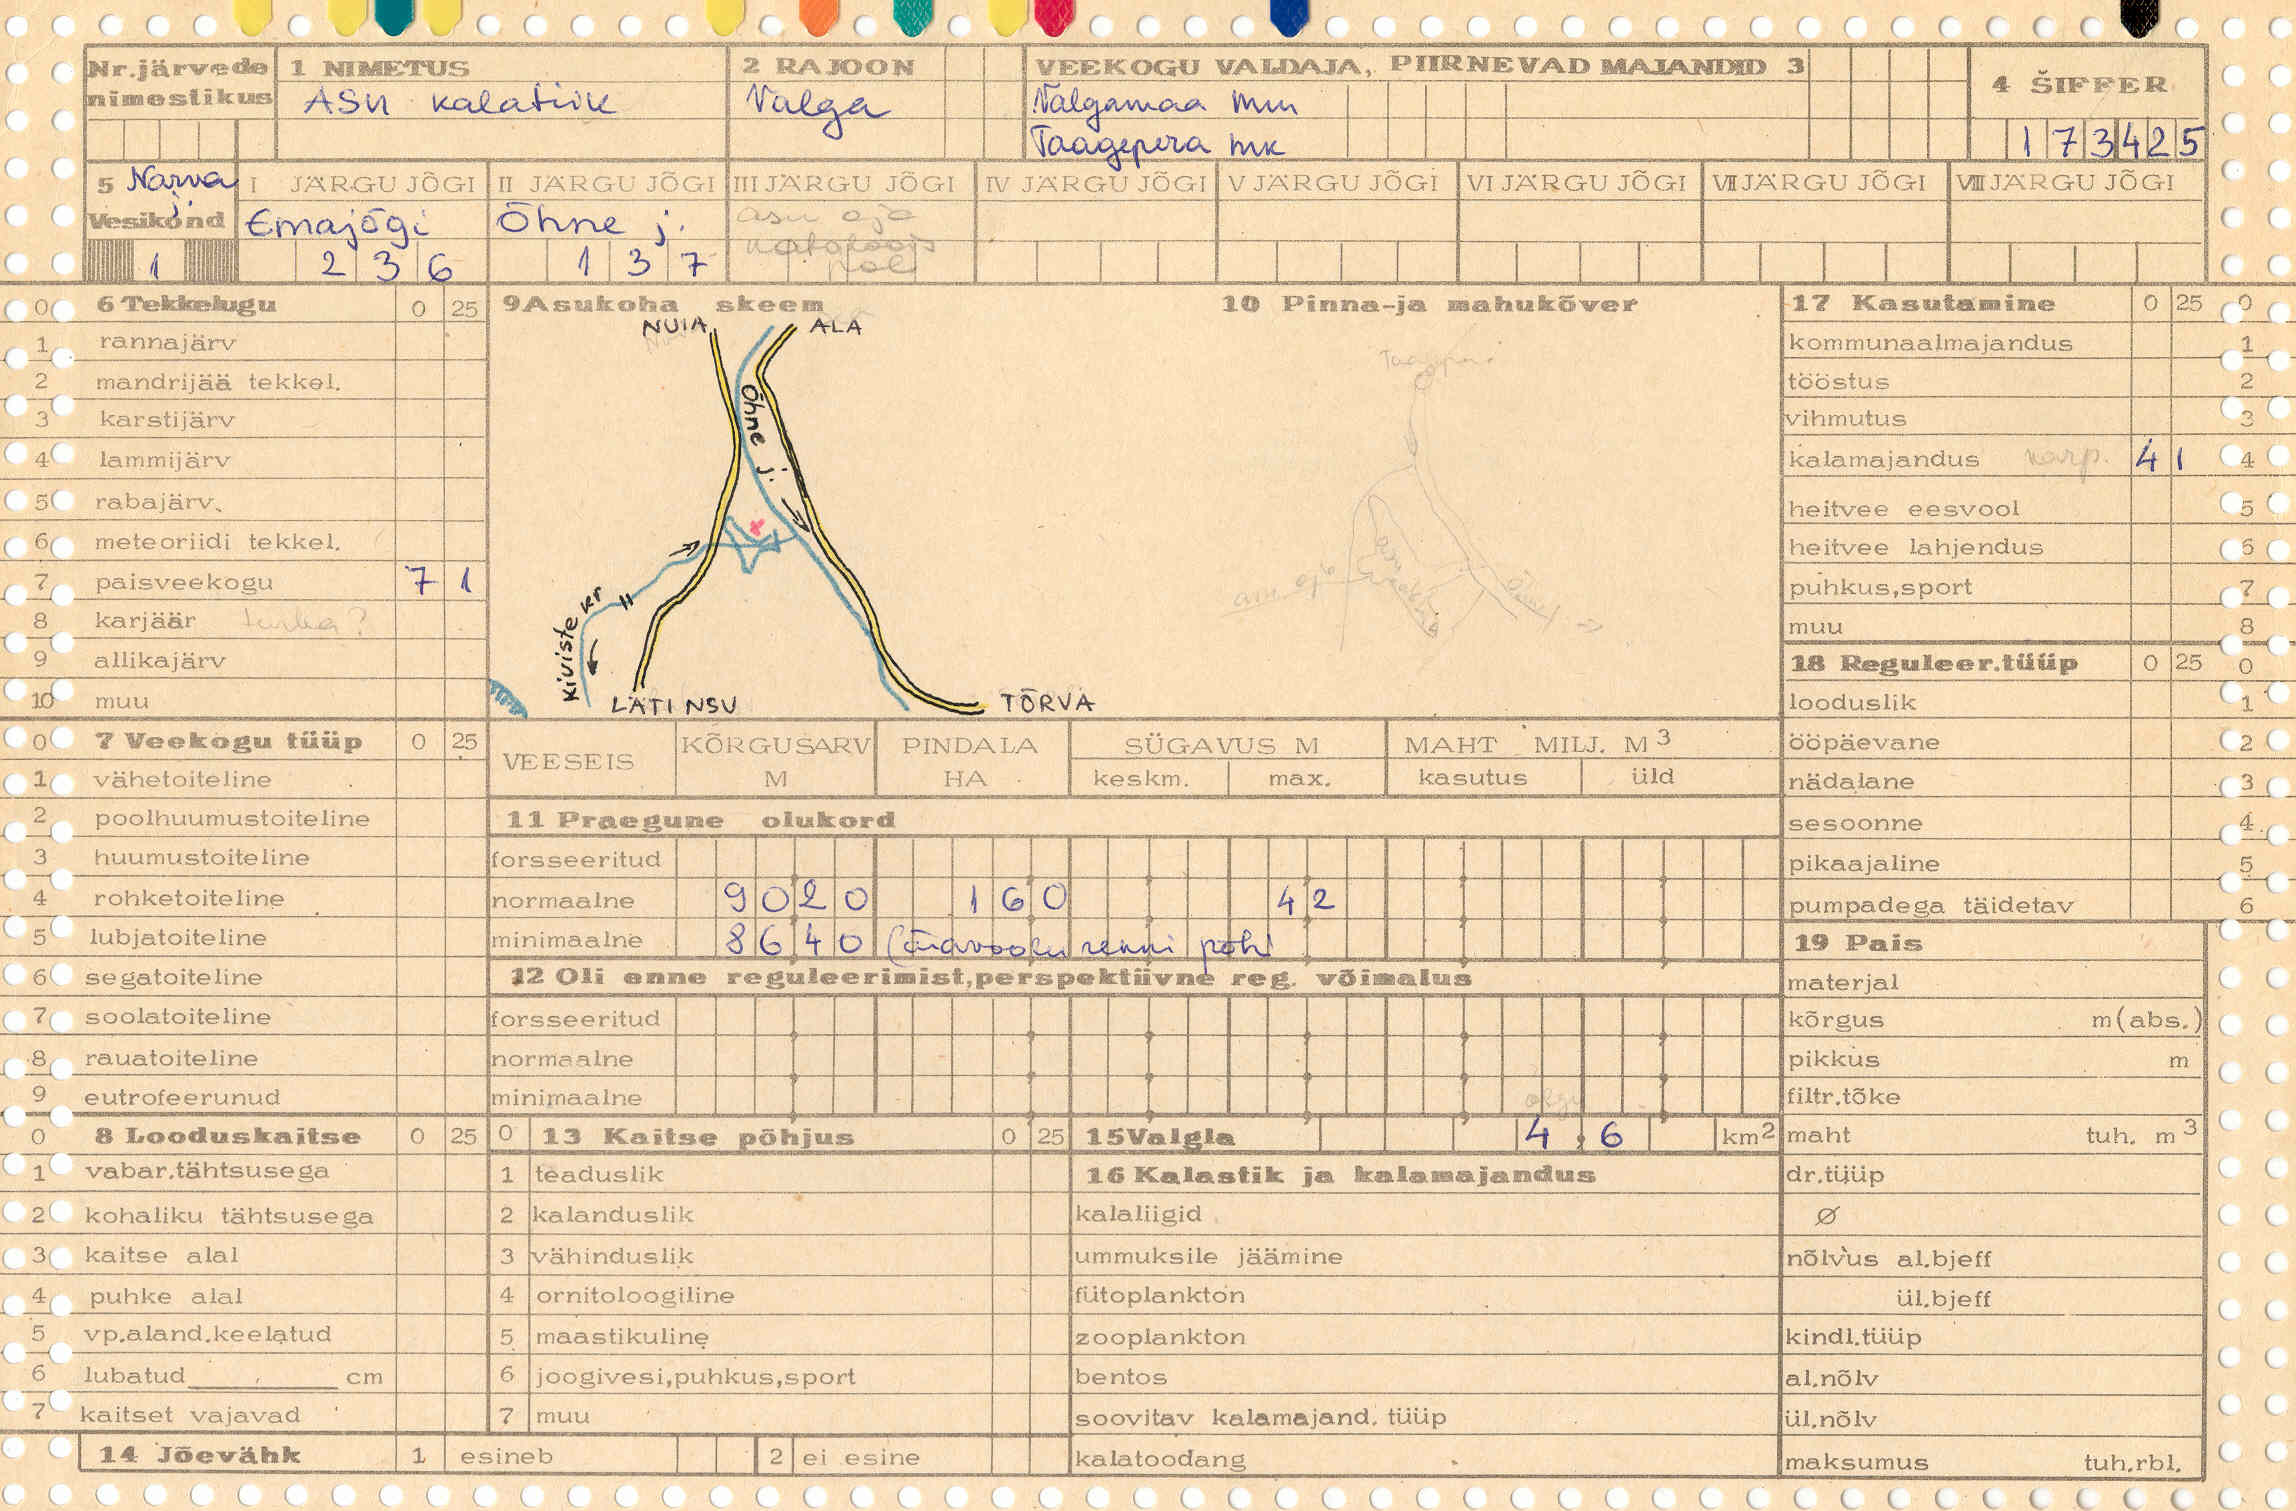 Nr.järvede nimestikus
1 NIMETUS
ASU kalatiik
2 RAJOON
Valga
VEEKOGU VALDAJA, PIIRNEVAD MAJANDID 3
Valgamaa mm
Taagepera mk
4 ŠIFFER
173425
5 Narva j.
Vesikond
1
I JÄRGU JÕGI
Emajõgi
236
II JÄRGU JÕGI
Õhne j.
137
III JÄRGU JÕGI
asu oja
IV JÄRGU JÕGI
V JÄRGU JÕGI
VI JÄRGU JÕGI
VII JÄRGU JÕGI
VIII JÄRGU JÕGI
0 6 Tekkelugu 0 25
1 rannajärv
2 mandrijää tekkel.
3 karstijärv
4 lammijärv
5 rabajärv.
6 meteoriidi tekkel.
7 paisveekogu 7 1
8 karjäär
9 allikajärv
10 muu
9 Asukoha skeem
NUIA
ALA
Õhne j.
Kiviste kr
LÄTI NSU
TÕRVA
10 Pinna-ja mahukõver
Taagepera
asu oja
17 Kasutamine 0 25 0
kommunaalmajandus 1
tööstus 2
vihmutus 3
kalamajandus karp. 4 1 4
heitvee eesvool 5
heitvee lahjendus 6
puhkus,sport 7
muu 8
18 Reguleer.tüüp 0 25 0
looduslik 1
ööpäevane 2
nädalane 3
sesoonne 4
pikaajaline 5
pumpadega täidetav 6
0 7 Veekogu tüüp 0 25
1 vähetoiteline
2 poolhuumustoiteline
3 huumustoiteline
4 rohketoiteline
5 lubjatoiteline
6 segatoiteline
7 soolatoiteline
8 rauatoiteline
9 eutrofeerunud
VEESEIS
KÕRGUSARV M
PINDALA HA
SÜGAVUS M
keskm. max.
MAHT MILJ. M3
kasutus üld
11 Praegune olukord
forsseeritud
normaalne 9020 160 42
minimaalne 8640 (äravoolu renni põhi
12 Oli enne reguleerimist,perspektiivne reg. võimalus
forsseeritud
normaalne
minimaalne
19 Pais
materjal
kõrgus m(abs.)
pikkus m
filtr.tõke
maht tuh. m3
dr.tüüp
Ø
nõlvus al.bjeff
ül.bjeff
kindl.tüüp
al.nõlv
ül.nõlv
maksumus tuh.rbl.
0 8 Looduskaitse 0 25
1 vabar.tähtsusega
2 kohaliku tähtsusega
3 kaitse alal
4 puhke alal
5 vp.aland.keelatud
6 lubatud cm
7 kaitset vajavad
0 13 Kaitse põhjus 0 25
1 teaduslik
2 kalanduslik
3 vähinduslik
4 ornitoloogiline
5 maastikuline
6 joogivesi,puhkus,sport
7 muu
15 Valgla 4,6 km2
16 Kalastik ja kalamajandus
kalaliigid
ummuksile jäämine
fütoplankton
zooplankton
bentos
soovitav kalamajand. tüüp
kalatoodang
14 Jõevähk 1 esineb 2 ei esine